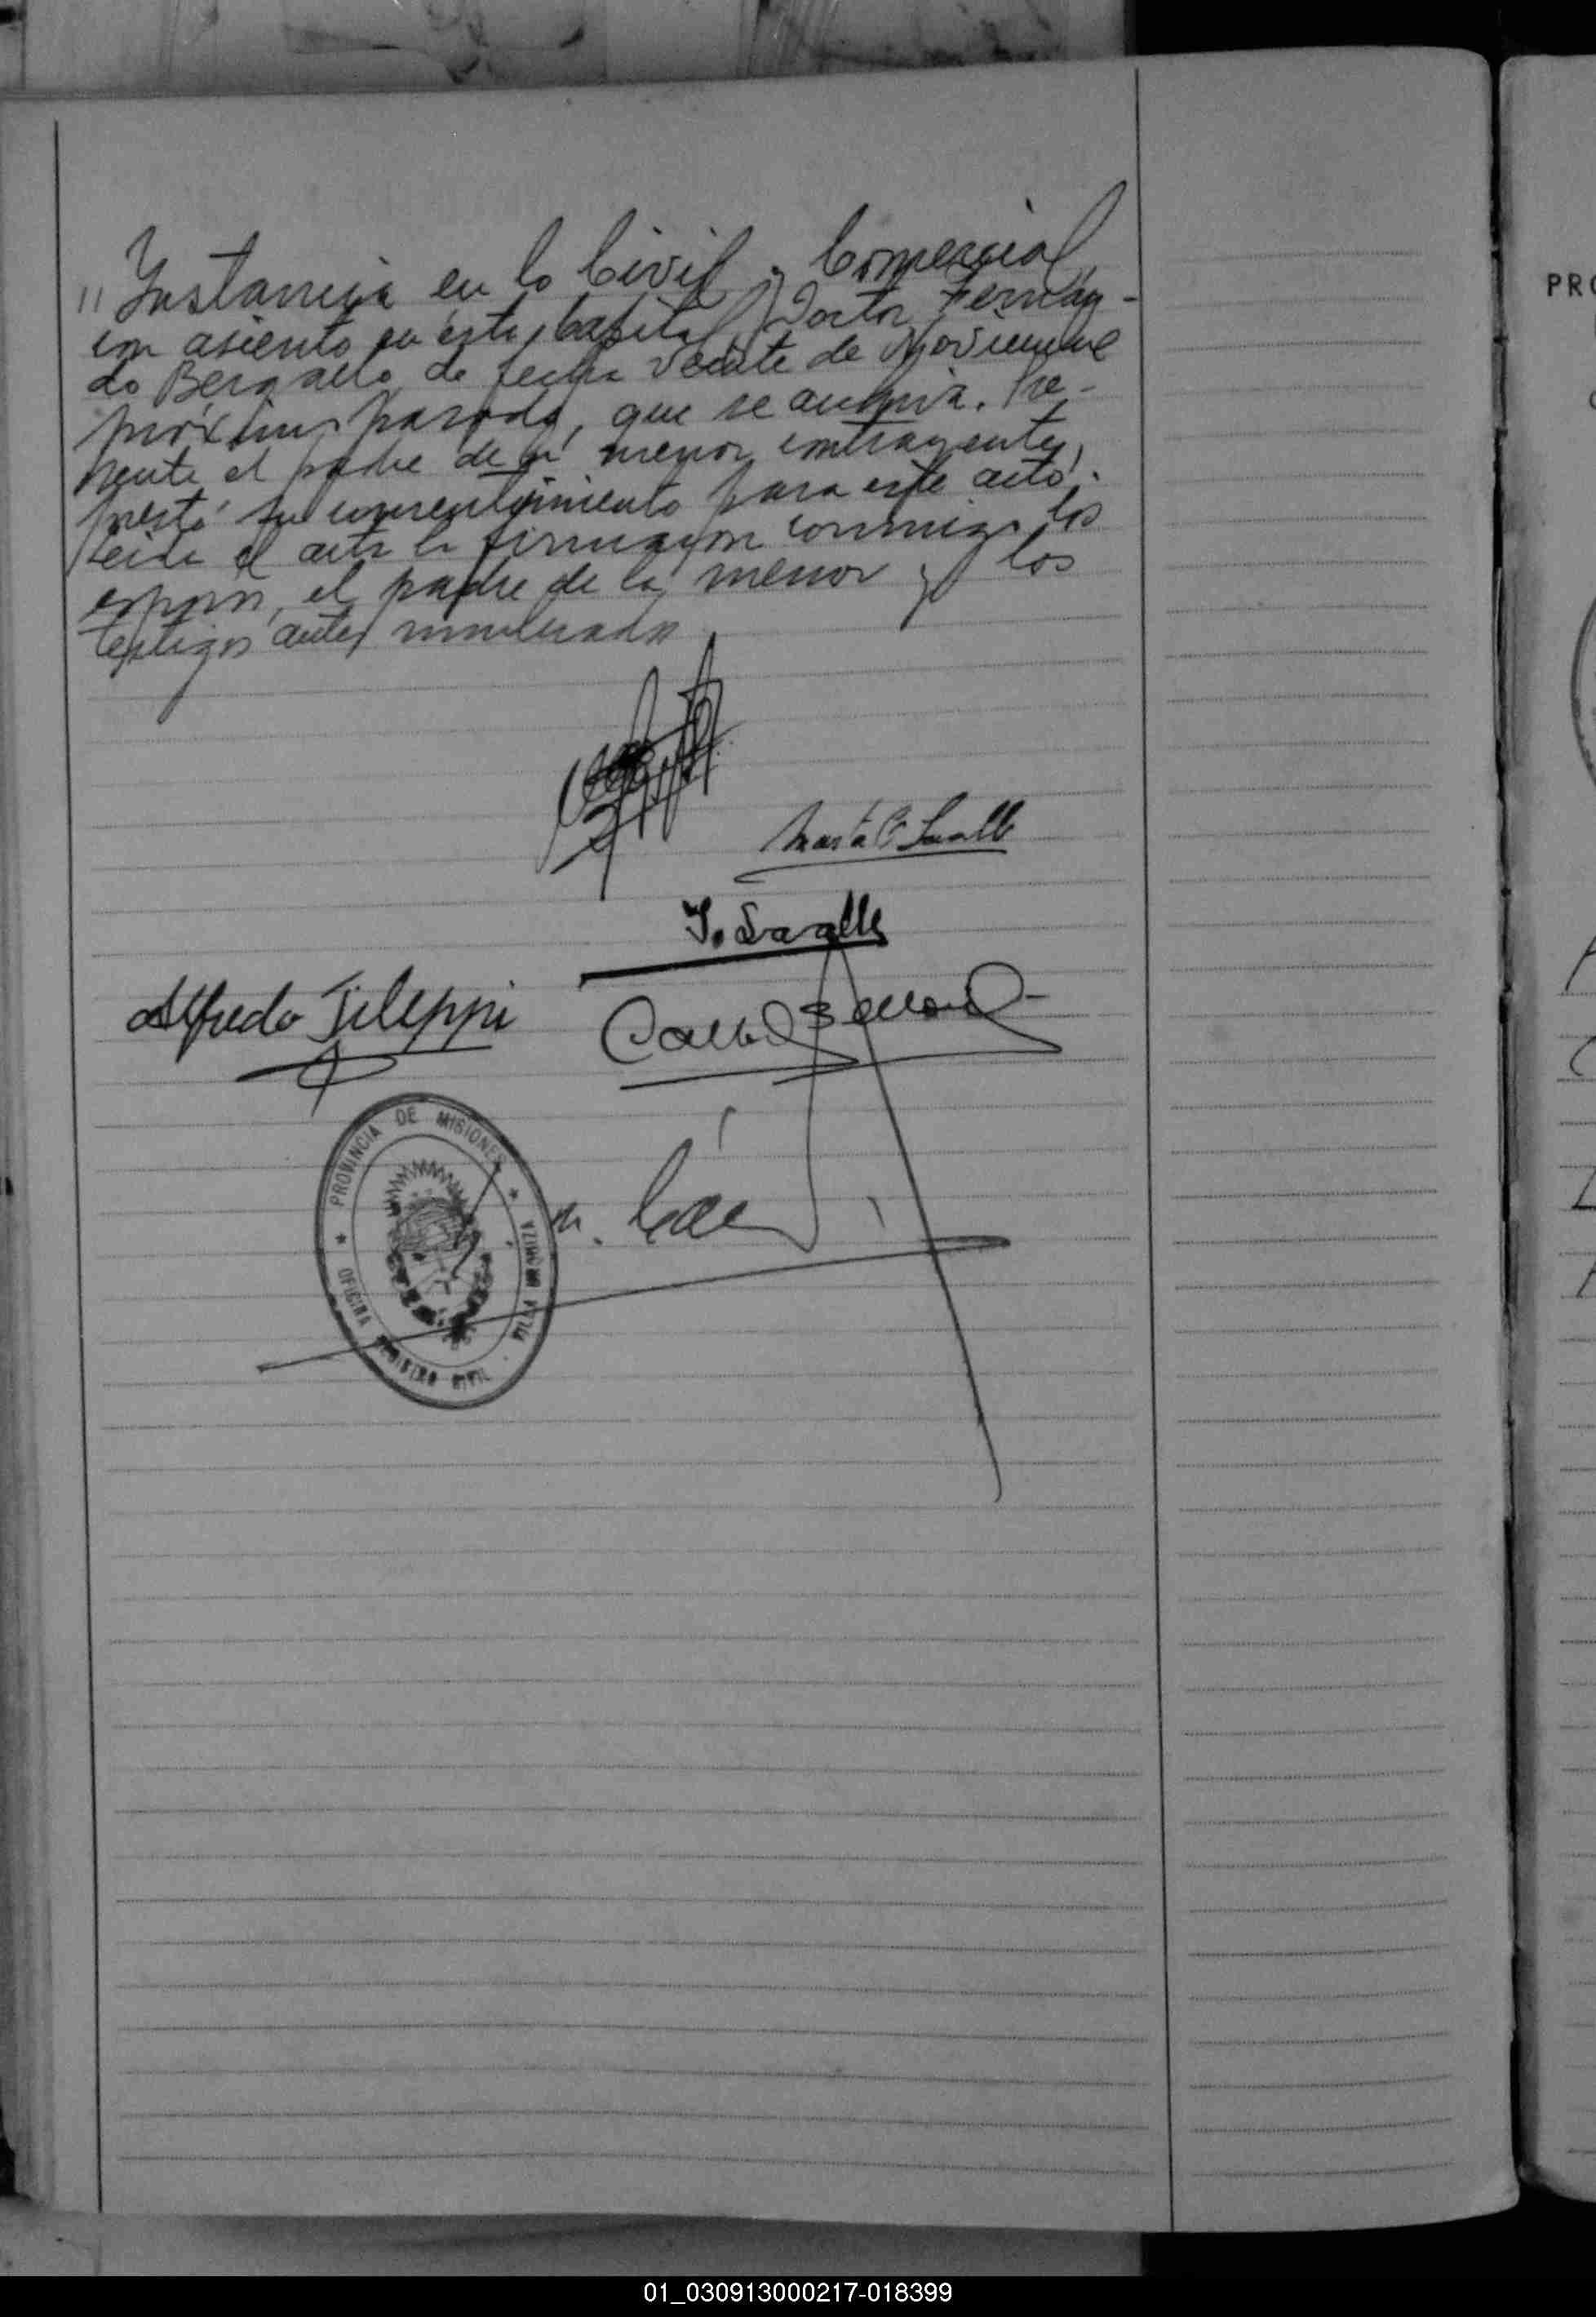 " Instancia en lo Civil y Comercial
con asiento en esta Capital, Doctor Fernan-
do Bergallo, de fecha veinte de Noviembre
próximo pasado, que se archiva. Pre-
sente el padre de la menor contrayente,
prestó su consentimiento para este acto.
Leída el acta la firmaron conmigo los
esposos, el padre de la menor y los
testigos antes nombrados
Marta
Alfredo Fileppi
PROVINCIA DE MISIONES
OFICINA REGISTRO CIVIL
VILLA URQUIZA
PRO
01_030913000217-018399